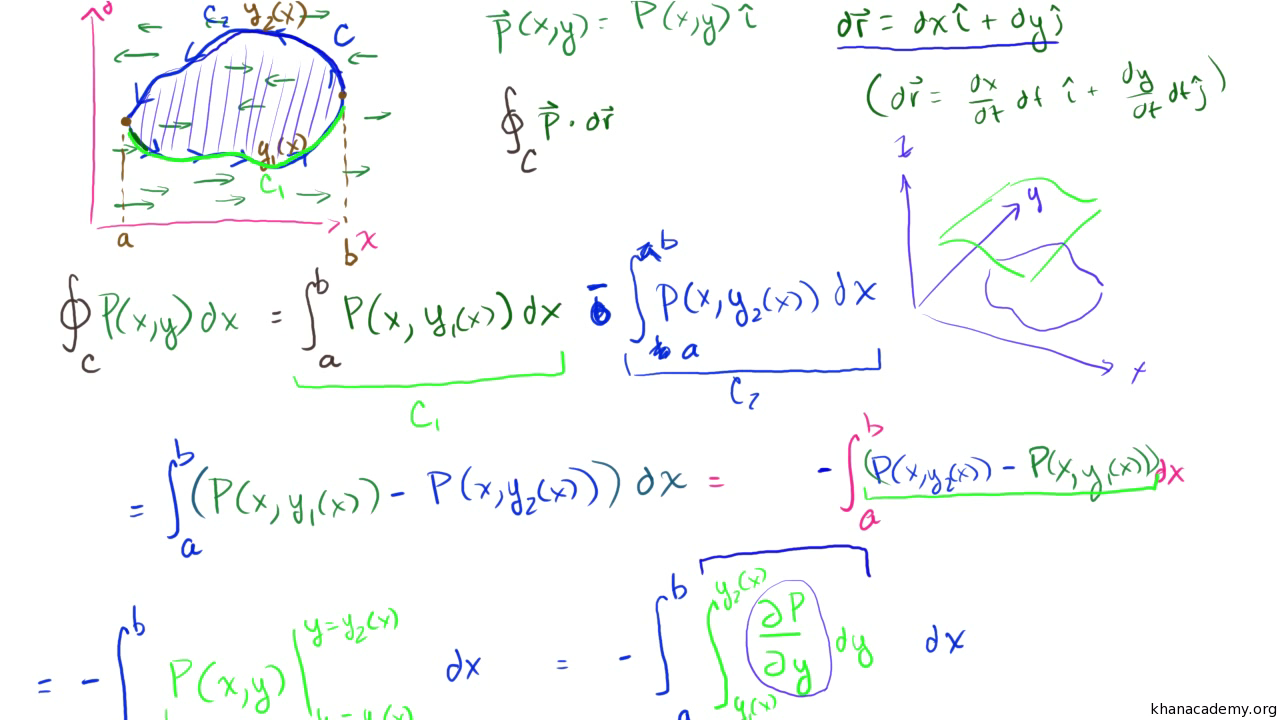 C₂ y₂(x) C
y₁(x)
C₁
a b x
P⃗(x,y) = P(x,y) î
∮_C P⃗ · dr⃗
dr⃗ = dx î + dy ĵ
(dr⃗ = dx/dt dt î + dy/dt dt ĵ)
z y x
∮_C P(x,y) dx = ∫_a^b P(x, y₁(x)) dx - ∫_a^b P(x, y₂(x)) dx
C₁ C₂
= ∫_a^b (P(x, y₁(x)) - P(x, y₂(x))) dx = - ∫_a^b (P(x, y₂(x)) - P(x, y₁(x))) dx
= - ∫^b P(x,y) |^{y=y₂(x)} dx = - ∫_a^b ∫_{y₁(x)}^{y₂(x)} ∂P/∂y dy dx
khanacademy.org